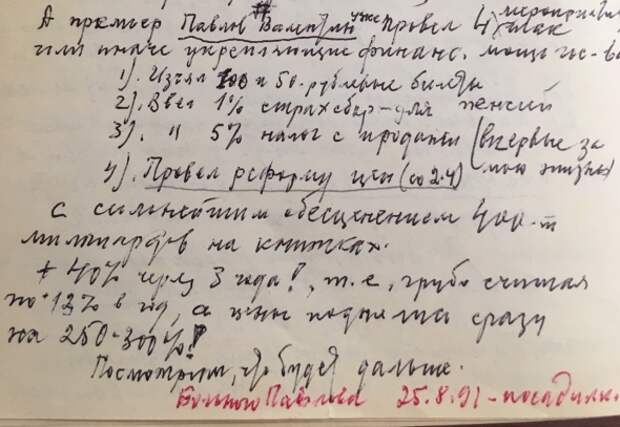 А премьер Павлов Валентин уже провел 4 мероприятия
или иначе укрепляющие финанс. мощь гос-ва
1). Изъял 100 и 50-рублевые билеты
2). Ввел 1% страхсбор - для пенсий
3). " 5% налог с продажи (впервые за мою жизнь)
4). Провел реформу цен (со 2.4)
с сильнейшим обесценением 400-т
миллиардов на книжках.
+ 40% через 3 года!, т.е. грубо считая
по 13% в год, а цены поднялись сразу
на 250-300%!
Посмотрим, что будет дальше.
Павлова 25.8.91 - посадили.